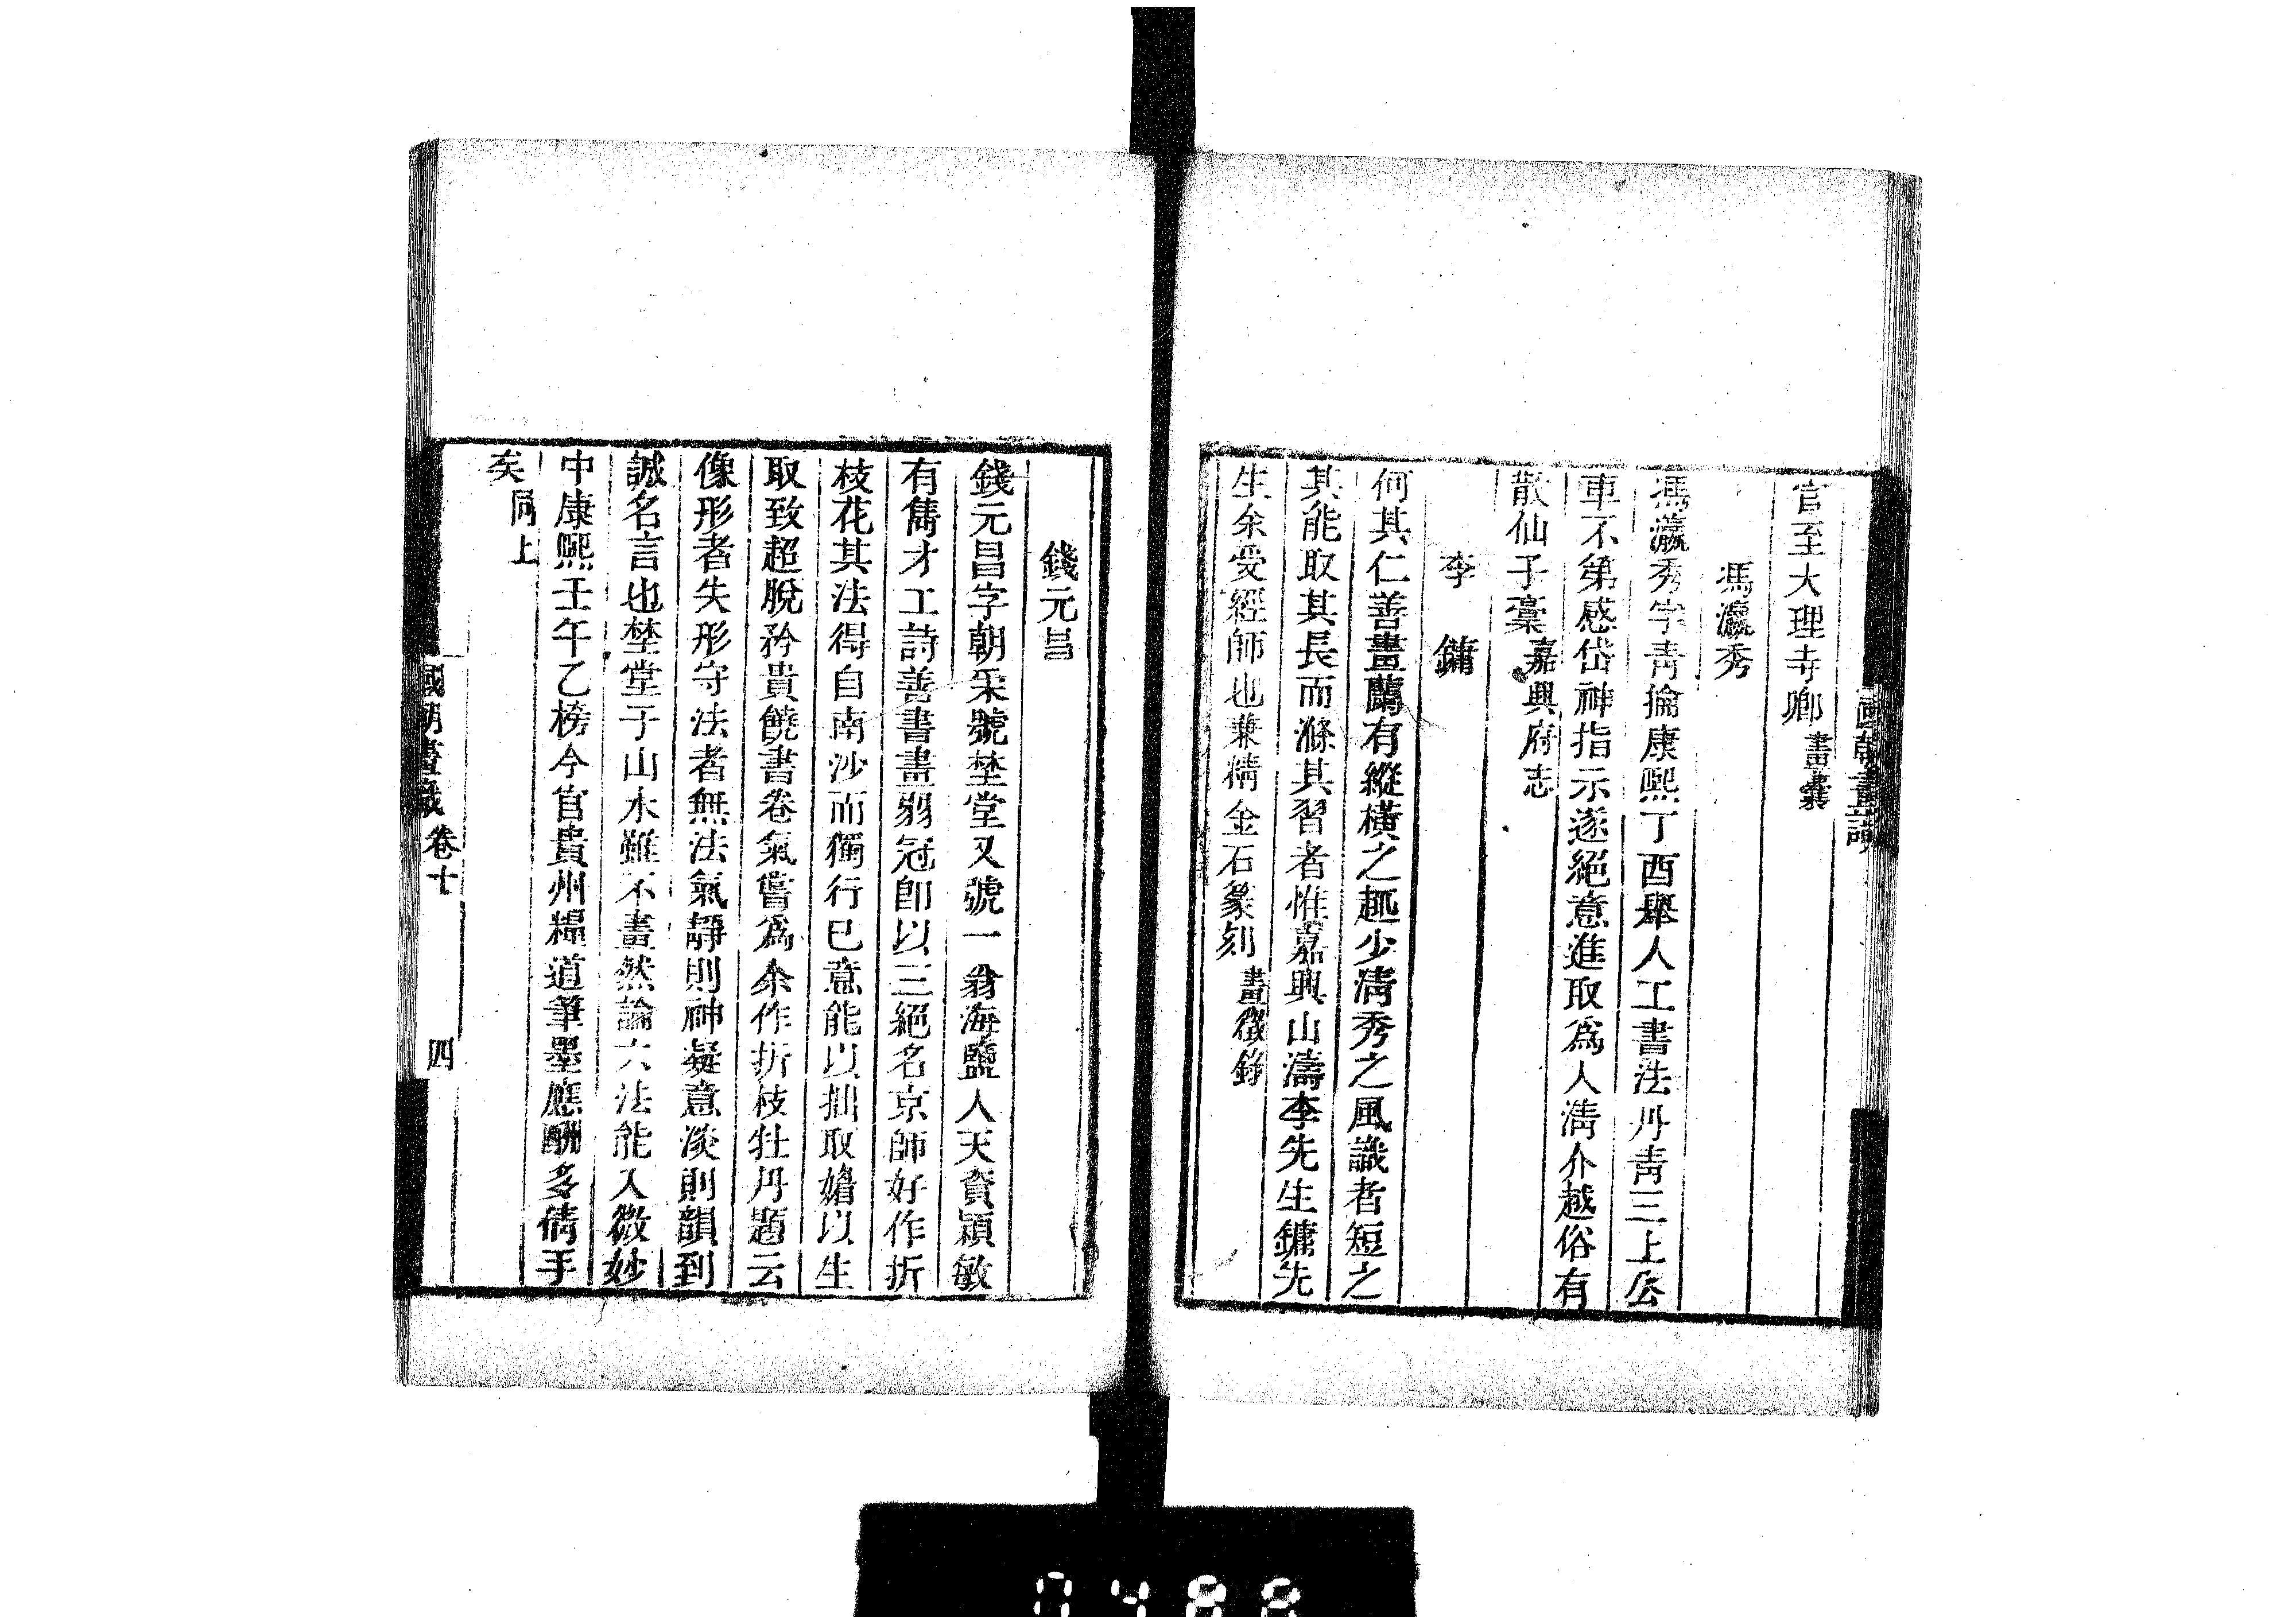 官至大理寺卿畫囊
馮瀛秀
馮瀛秀字靑掄康熙丁酉舉人工書法丹靑三上公
車不第感岱神指示遂絕意進取爲人淸介越俗有
散仙子稾嘉興府志
李鏞
何其仁善畫蘭有縱橫之趣少淸秀之風識者短之
其能取其長而滌其習者惟嘉興山濤李先生鏞先
生余受經師也兼精金石篆刻畫徵錄
錢元昌
錢元昌字朝采號埜堂又號一翁海鹽人天資穎敏
有雋才工詩善書畫弱冠卽以三絕名京師好作折
枝花其法得自南沙而獨行己意能以拙取媚以生
取致超脫矜貴饒書卷氣嘗爲余作折枝牡丹題云
像形者失形守法者無法氣靜則神凝意淡則韻到
誠名言也埜堂子山水雖不畫然論六法能入微妙
中康熙壬午乙榜今官貴州糧道筆墨應酬多倩手
矣同上
國朝畫識
卷十
四
0488